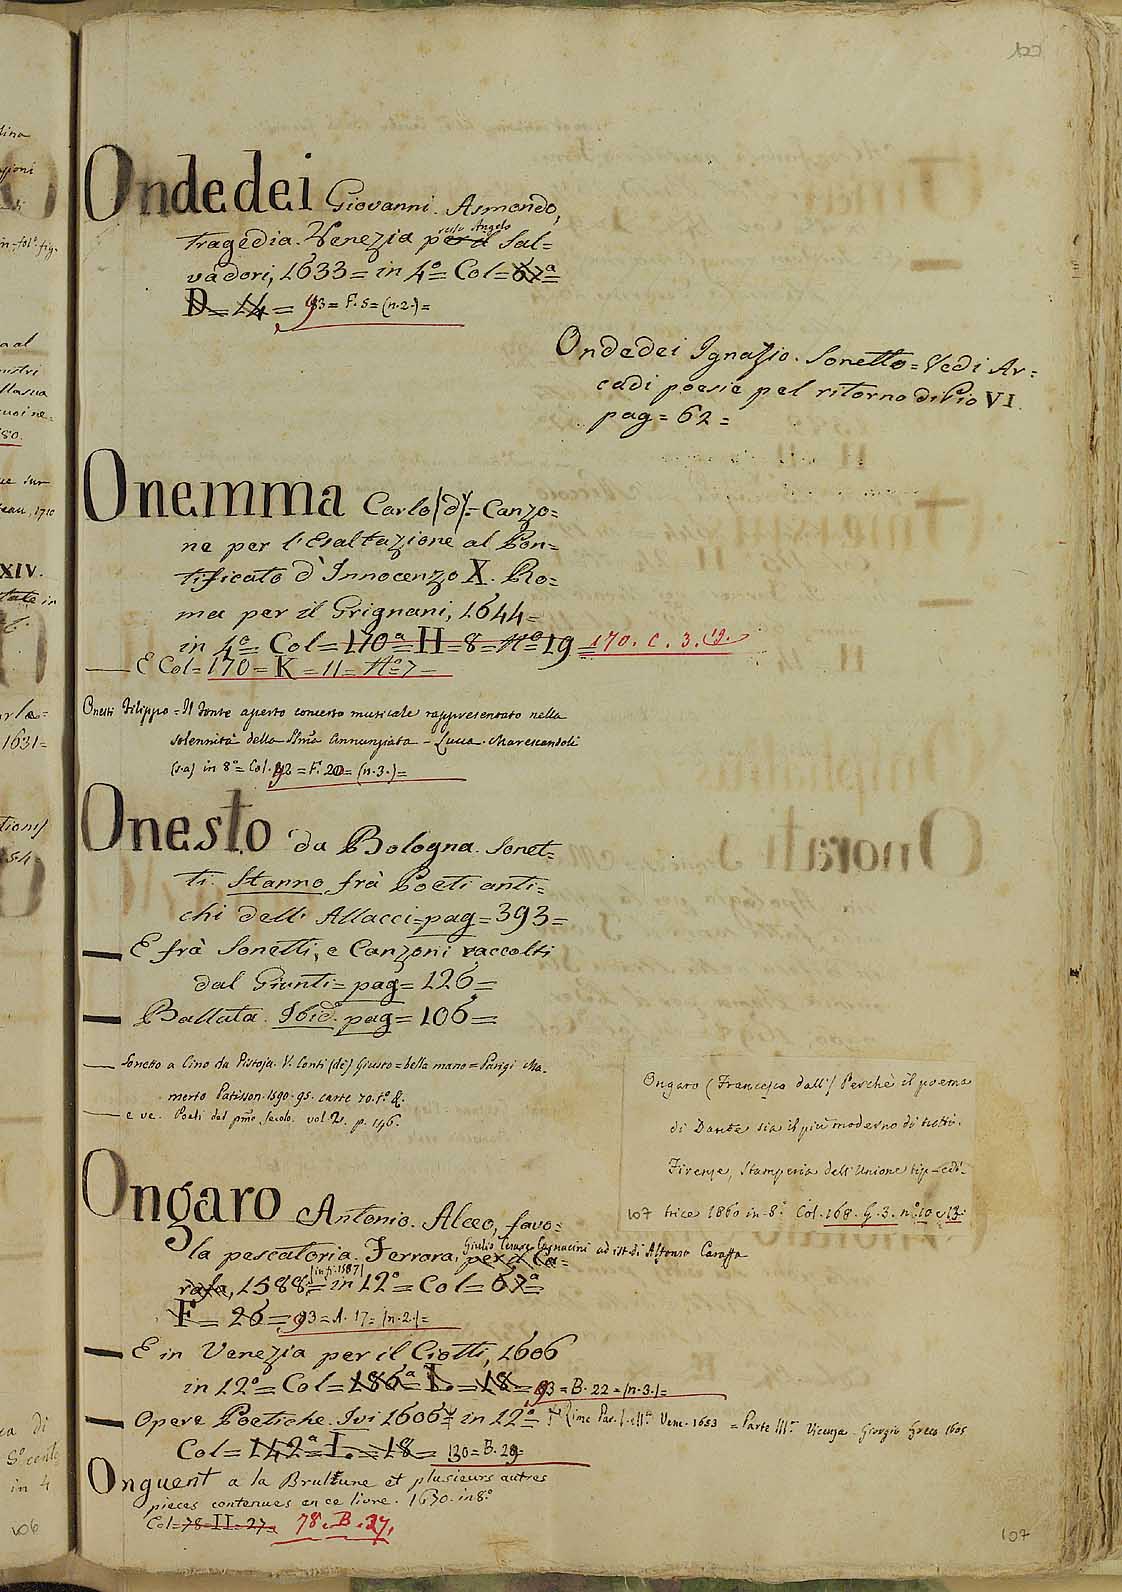 Ondedei Giovanni. Asmondo,
tragedia. Venezia per il Sal=
vadori, 1633 = in 4º = Col = 67ª =
D = 14 = 93 = F. 5 = (n. 2.) =
Ondedei Ignazio. Sonetto = Vedi Ar=
cadi poesie pel ritorno di Pio VI.
pag = 62 =
Onemma Carlo (d') = Canzo=
ne per l'Esaltazione al Pon=
tificato d'Innocenzo X. Ro=
ma per il Grignani, 1644 =
in 4º = Col = 170ª = H = 8 = Nº 19 = 170. C. 3. (9.
E Col = 170 = K = 11 = Nº 7 =
Onesti Filippo = Il fonte aperto concerto musicale rappresentato nella
solennità della SSma Annunziata - Lucca. Marescandoli
(s.a) in 8º = Col. 92 = F. 20 = (n. 3.) =
Onesto da Bologna. Sonet=
ti. Stanno frà Poeti anti=
chi dell' Allacci = pag = 393 =
E frà Sonetti, e Canzoni raccolti
dal Giunti = pag = 126 =
Ballata. Ibid. pag = 106 =
Sonetto a Cino da Pistoja. V. Conti (de') Giusto = bella mano = Parigi Ma.
merto Patisson. 1590. 95. carte 70. tº &.
e ve. Poeti del pmo Secolo. vol 2. p. 146.
Ongaro (Francesco dall') Perchè il poema
di Dante sia il più moderno di tutti.
Firenze, Stamperia dell'Unione tip-edi-
trice 1860 in-8º Col. 168. G. 3. nº 10 e 13.
107
Ongaro Antonio. Alceo, favo=
la pescatoria. Ferrara, per il Ca= Giulio Cesare Cagnacini ad ist. di Alfonso Caraffa
rafa, 1588 = (in fi. 1587) in 12º = Col = 67ª =
F = 26 = 93 = A. 17 = (n. 2.) =
E in Venezia per il Ciotti, 1606
in 12º = Col = 186ª = I. = 18 = 93 = B. 22 = (n. 3.) =
Opere Poetiche. Ivi 1606 = in 12º = Rime Par. Ven. 1653 = Parte IIIª Vicenza - Giorgio Greco 1605
Col = 142ª = I. = 18 = 130 = B. 29 =
Onguent a la Brullune et plusieurs autres
pieces contenues en ce livre. 1670. in 8º
Col = 78 = II = 27. 78. B. 27.
107